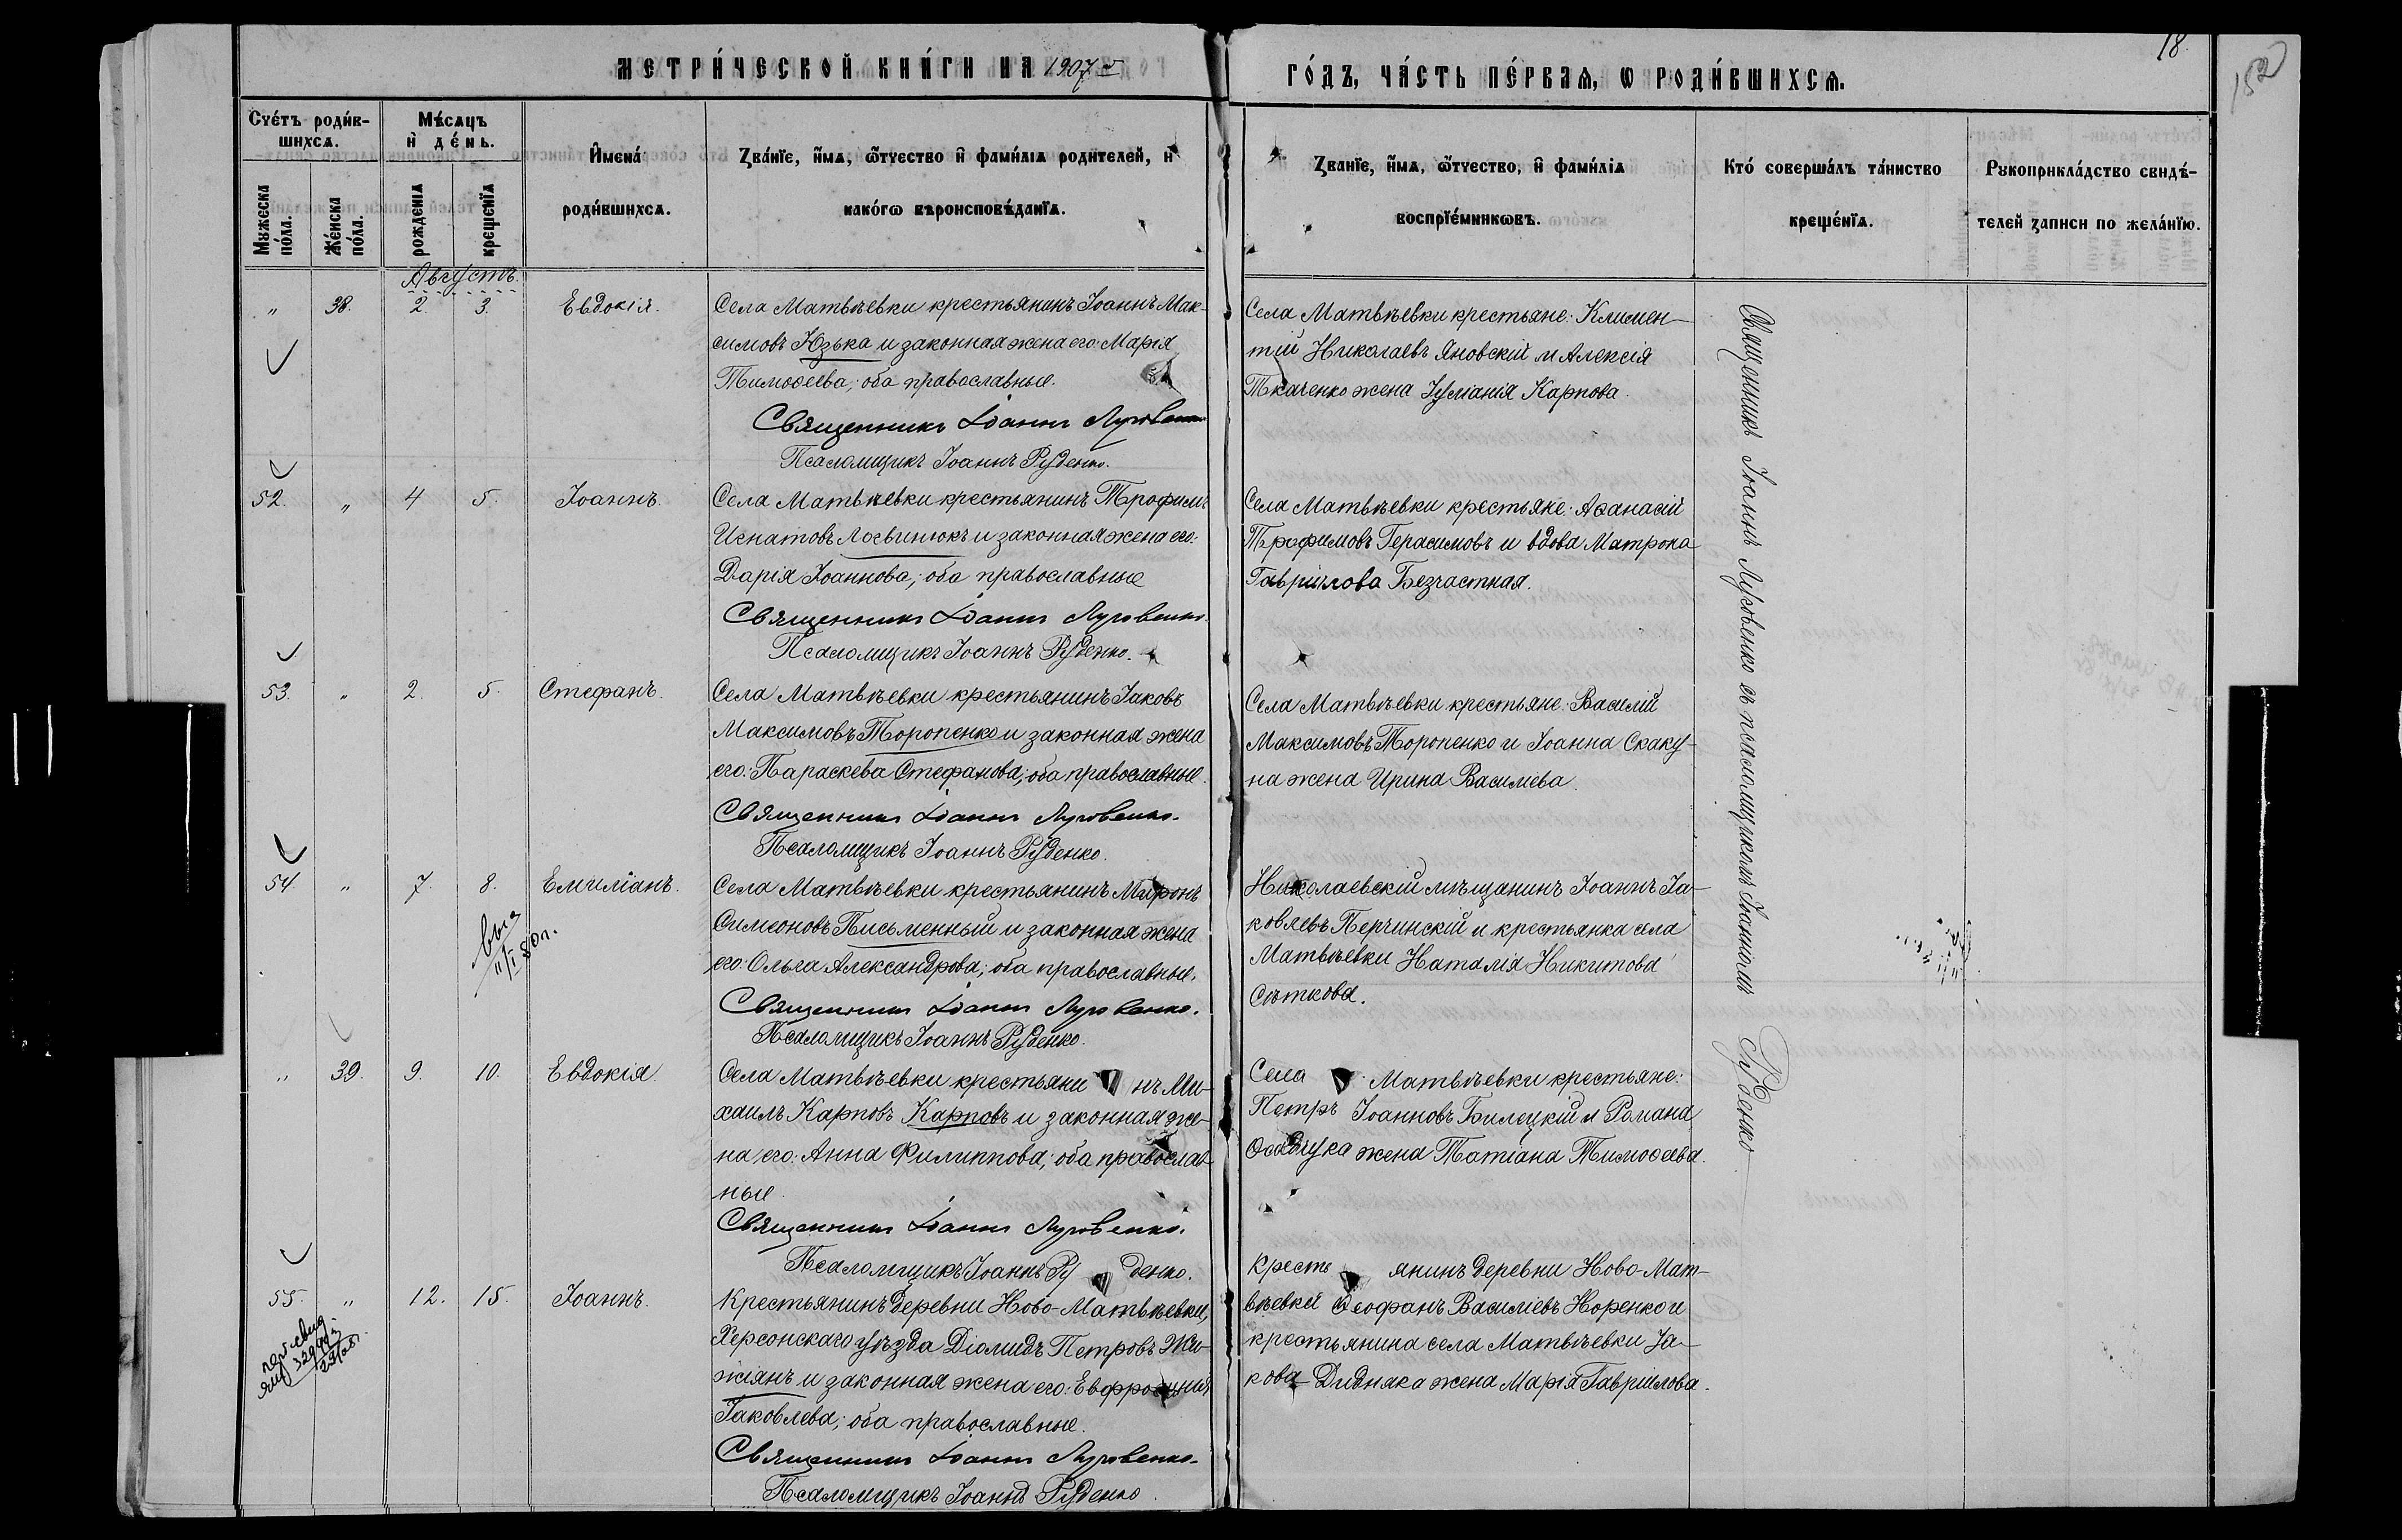 МЕТРИ́ЧЕСКОЙ КНИ́ГИ НА 1907 й
ГО́ДЪ, ЧА́СТЬ ПЕ́РВАѦ, Ѡ РОДИ́ВШИХСѦ.
18.
152
Счѐтъ роди́в-
шихсѧ.
Мѣ́сѧцъ
и҆ де́нь.
И҆мена̀
роди́вшихсѧ.
Зва́нїе, и҆́мѧ, ѻ҆́тчество и҆ фами́лїѧ роди́телей, и҆
какѡ́гѡ вѣроисповѣ́данїѧ.
Зва́нїе, и҆́мѧ, ѻ҆́тчество, и҆ фами́лїѧ
воспрїе́мникѡвъ.
Кто̀ соверша́лъ та́инство
креще́нїѧ.
Рукоприкла́дство свидѣ́-
телей записи по жела́нїю.
Мужеска
по́ла.
Же́нска
по́ла.
рожденїѧ
крещенїѧ
Августъ.
" 38. 2. 3. Евдокія.
Села Матвѣевки крестьянинъ Іоаннъ Мак-
симовъ Кзька и законная жена его: Марія
Тимоѳеева; оба православные.
Священникъ Іоаннъ Луговенко
Псаломщикъ Іоаннъ Руденко.
Села Матвѣевки крестьяне: Климен-
тій Николаевъ Яновскій и Алексія
Ткаченко жена Іуліанія Карпова.
52. " 4 5. Іоаннъ.
Села Матвѣевки крестьянинъ Трофимъ
Игнатовъ Логвинюкъ и законная жена его:
Дарія Іоаннова; оба православные
Священникъ Іоаннъ Луговенко.
Псаломщикъ Іоаннъ Руденко.
Села Матвѣевки крестьяне: Аѳанасій
Трофимовъ Герасимовъ и вдова Матрона
Гавріилова Безчастная.
53. " 2. 5. Стефанъ.
Села Матвѣевки крестьянинъ Іаковъ
Максимовъ Торопенко и законная жена
его: Параскева Стефанова; оба православные.
Священникъ Іоаннъ Луговенко.
Псаломщикъ Іоаннъ Руденко.
Села Матвѣевки крестьяне: Василій
Максимовъ Торопенко и Іоанна Скаку-
на жена Ирина Василіева.
54. " 7. 8. Емиліанъ.
11/I 80 г.
Села Матвѣевки крестьянинъ Миронъ
Симеоновъ Письменный и законная жена
его: Ольга Александрова; оба православные.
Священникъ Іоаннъ Луговенко.
Псаломщикъ Іоаннъ Руденко.
Николаевскій мѣщанинъ Іоаннъ Іа-
ковлевъ Перчинскій и крестьянка села
Матвѣевки Наталія Никитова
Сѣткова.
" 39. 9. 10. Евдокія.
Села Матвѣевки крестьянинъ Ми-
хаилъ Карповъ Карповъ и законная же-
на его: Анна Филиппова; оба православ-
ные.
Священникъ Іоаннъ Луговенко.
Псаломщикъ Іоаннъ Руденко.
Села Матвѣевки крестьяне:
Петръ Іоанновъ Билецкій и Романа
жена Татіана Тимоѳеева.
55. " 12. 15. Іоаннъ.
Крестьянинъ деревни Ново-Матвѣевки,
Херсонскаго уѣзда Діомидъ Петровъ Жи-
жіянъ и законная жена его: Евфросинія
Іаковлева; оба православные.
Священникъ Іоаннъ Луговенко.
Псаломщикъ Іоаннъ Руденко.
Крестьянинъ деревни Ново-Мат-
вѣевки Ѳеофанъ Василіевъ Норенко и
крестьянина села Матвѣевки Іа-
кова Дидняка жена Марія Гавріилова.
Священникъ Іоаннъ Луговенко съ псаломщикомъ Іоанномъ Руденко